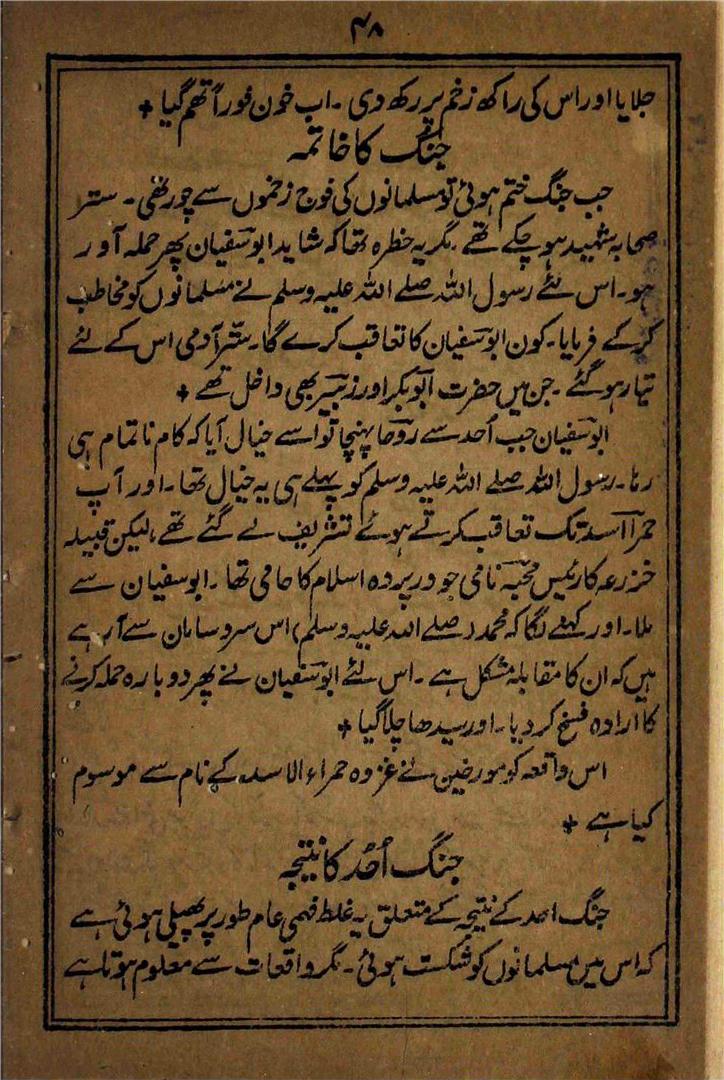 ۴۸
جلایا اور اس کی راکھ زخم پر رکھ دی ۔ اب خون فوراً تھم گیا +
جنگ کا خاتمہ
جب جنگ ختم ہوئی تو مسلمانوں کی فوج زخموں سے چور تھی ۔ ستر
صحابہ شہید ہو چکے تھے ۔ مگر یہ خطرہ تھا کہ شاید ابوسفیان پھر حملہ آور
ہو ۔ اس لئے رسول اللہ صلے اللہ علیہ وسلم نے مسلمانوں کو مخاطب
کر کے فرمایا ۔ کون ابوسفیان کا تعاقب کرے گا ۔ ستّر آدمی اس کے لئے
تیار ہو گئے ۔ جن میں حضرت ابوبکر اور زبیر بھی داخل تھے +
ابوسفیان جب اُحد سے روحا پہنچا تو اسے خیال آیا کہ کام ناتمام ہی
رہا ۔ رسول اللہ صلے اللہ علیہ وسلم کو پہلے ہی یہ خیال تھا ۔ اور آپ
حمرا آسد تک تعاقب کرتے ہوئے تشریف لے گئے تھے ، لیکن قبیلہ
خزرعہ کا رئیس محبہ نامی جو در پردہ اسلام کا حامی تھا ۔ ابوسفیان سے
ملا ۔ اور کہنے لگا کہ محمد (صلے اللہ علیہ وسلم) اس سروسامان سے آرہے
ہیں کہ ان کا مقابلہ مشکل ہے ۔ اس لئے ابوسفیان نے پھر دوبارہ حملہ کرنے
کا ارادہ فسخ کر دیا ۔ اور سیدھا چلا گیا +
اس واقعہ کو مورخین نے غزوہ حمراء الاسد کے نام سے موسوم
کیا ہے +
جنگ اُحد کا نتیجہ
جنگ احد کے نتیجہ کے متعلق یہ غلط فہمی عام طور پر پھیلی ہوئی ہے
کہ اس میں مسلمانوں کو شکست ہوئی ۔ مگر واقعات سے معلوم ہوتا ہے